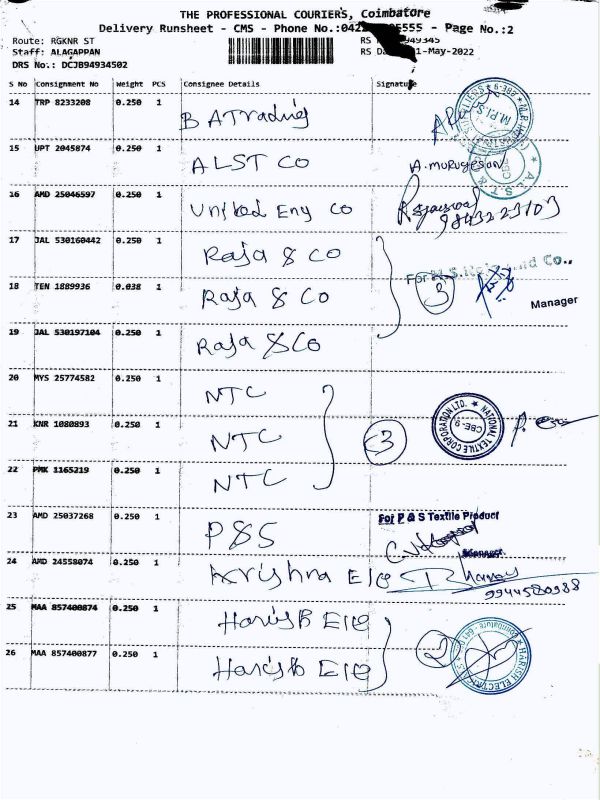 THE PROFESSIONAL COURIERS, Coimbatore
Delivery Runsheet - CMS - Phone No.:042 5555 - Page No.:2
Route: RGKNR ST RS 949345
Staff: ALAGAPPAN RS Da 1-May-2022
DRS No.: DCJB94934502
S No Consignment No Weight PCS Consignee Details Signature
14 TRP 8233208 0.250 1 B A Trading
15 UPT 2045874 0.250 1 ALST CO A. MURUGESAN
16 AMD 25046597 0.250 1 United Eng Co 9843223103
17 JAL 530160442 0.250 1 Raja & Co
For M.S. and Co.,
18 TEN 1889936 0.038 1 Raja & Co 3
Manager
19 JAL 530197104 0.250 1 Raja & Co
20 MYS 25774582 0.250 1 NTC
21 KNR 1080893 0.250 1 NTC 3 NATIONAL TEXTILE CORPORATION LTD. CBE-9
22 PMK 1165219 0.250 1 NTC
23 AMD 25037268 0.250 1 P&S For P & S Textile Product
Manager
24 AMD 24558074 0.250 1 Krishna Ele 9944580988
25 MAA 857400874 0.250 1 Harish Ele
26 MAA 857400877 0.250 1 Harish Ele 2 HARISH ELECTRI